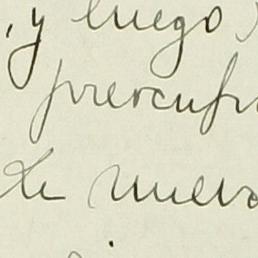 , y luego
preocup
de nuevo